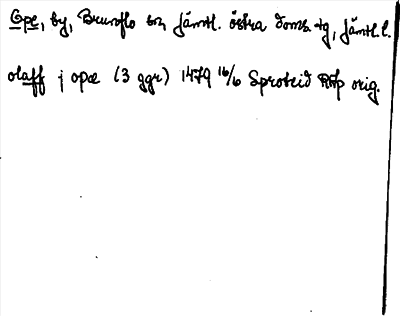 Ope, by, Brunflo sn, Jämtl. östra doms. tg, Jämtl. l.
olaff j opæ (3 ggr) 1479 16/6 Sproteid RAp orig.